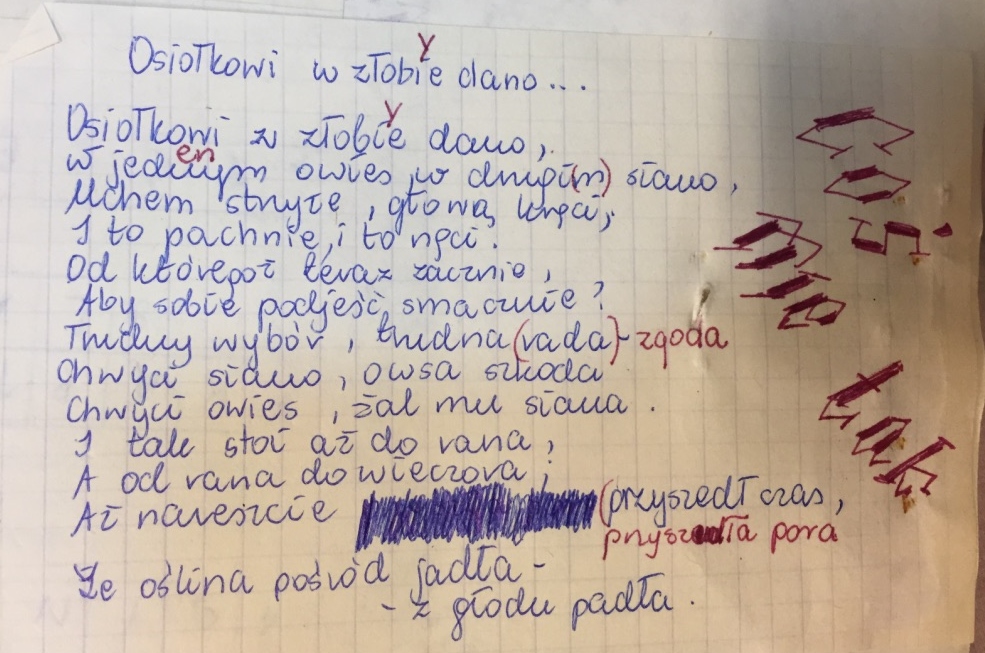 Osiołkowi w złobie y dano...
Osiołkowi w złobie y dano,
w jednym en owies, w drugim) siano,
Uchem strzyże, głową kręci,
I to pachnie, i to nęci.
Od któregoż teraz zacznie,
Aby sobie podjeść smacznie?
Trudny wybór, trudna (rada) - zgoda
Chwyci siano, owsa szkoda
Chwyci owies, żal mu siana.
I tak stoi aż do rana,
A od rana do wieczora;
Aż nareszcie (przyszedł czas,
przyszedła pora
Że oślina pośród jadła -
- z głodu padła.